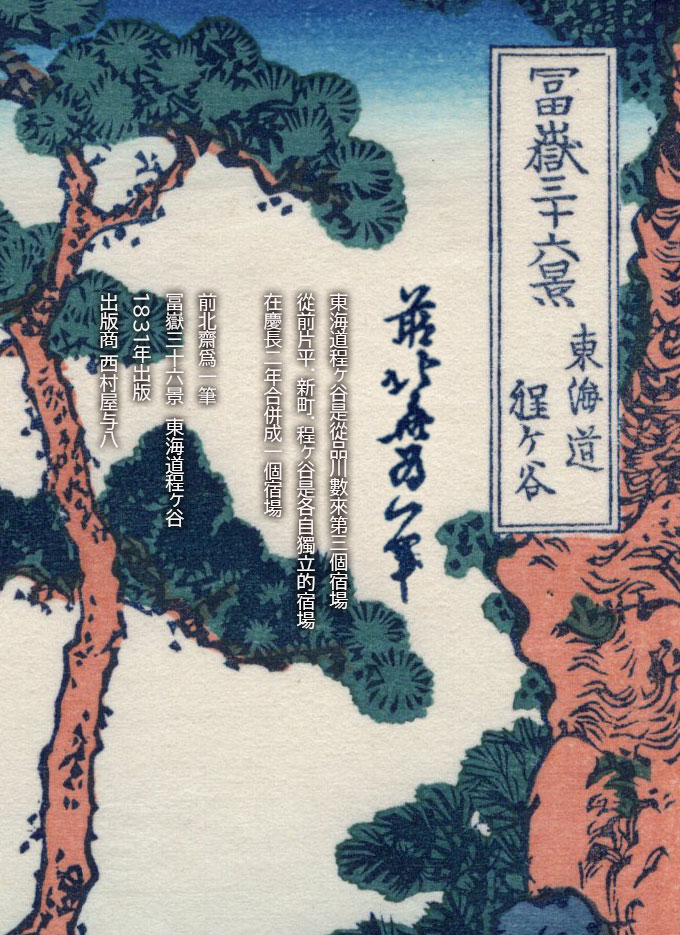 冨嶽三十六景
東海道
程ヶ谷
前北斎為一筆
東海道程ヶ谷是從品川數來第三個宿場
從前片平．新町．程ヶ谷是各自獨立的宿場
在慶長二年合併成一個宿場
前北齋爲一筆
冨嶽三十六景 東海道程ヶ谷
1831年出版
出版商 西村屋与八